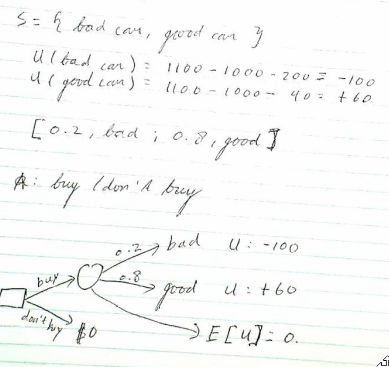 S = { bad car, good car }
U(bad car) = 1100 - 1000 - 200 = -100
U(good car) = 1100 - 1000 - 40 = +60
[0.2, bad ; 0.8, good]
A: buy / don't buy
0.2 bad U: -100
buy 0.8 good U: +60
don't buy $0 E[U] = 0.